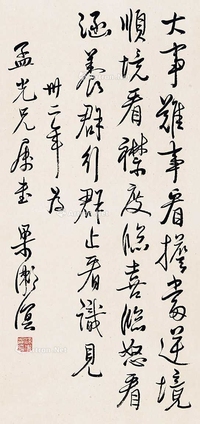 大事難事看擔當逆境
順境看襟度臨喜臨怒看
涵養群行群止看識見
卅二年 為
孟光兄屬書 梁漱溟